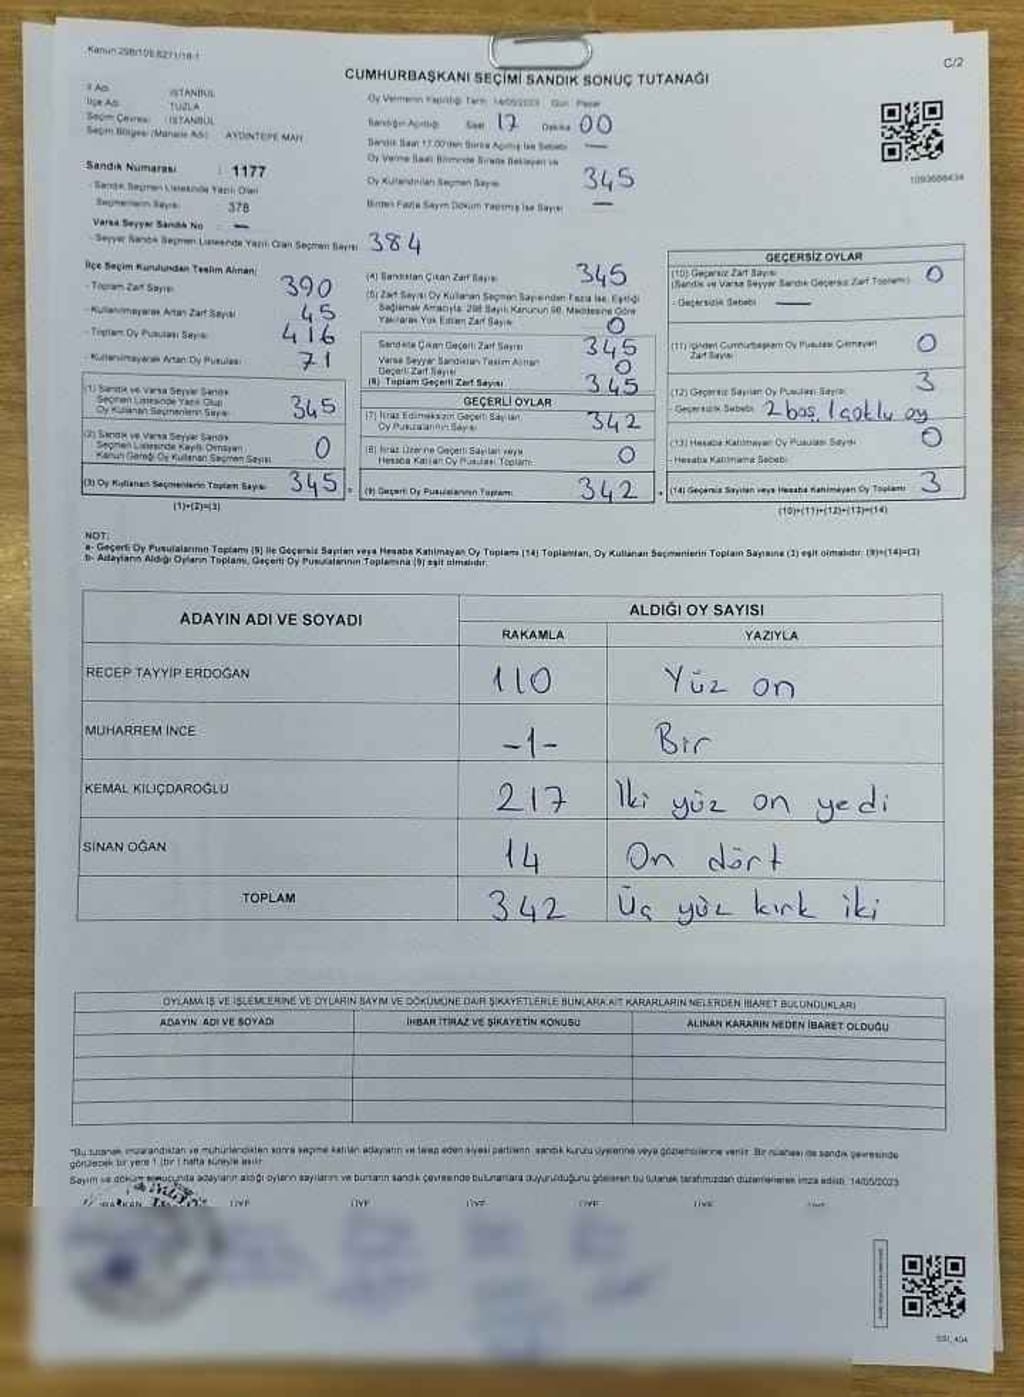 C/2
CUMHURBAŞKANI SEÇİMİ SANDIK SONUÇ TUTANAĞI
İl Adı İSTANBUL
İlçe Adı TUZLA
Seçim Çevresi İSTANBUL
Seçim Bölgesi (Mahalle Adı) AYDINTEPE MAH
Oy Vermenin Yapıldığı Tarih 14/05/2023 Gün Pazar
Sandığın Açıldığı Saat 17 Dakika 00
Sandık Saat 17.00'den Sonra Açılmış İse Sebebi —
Oy Verme Saati Bitiminde Sırada Bekleyen ve
Oy Kullandırılan Seçmen Sayısı 345
Birden Fazla Sayım Döküm Yapılmış İse Sayısı —
Sandık Numarası : 1177
- Sandık Seçmen Listesinde Yazılı Olan
Seçmenlerin Sayısı 378
Varsa Seyyar Sandık No : —
- Seyyar Sandık Seçmen Listesinde Yazılı Olan Seçmen Sayısı 384
1093686434
İlçe Seçim Kurulundan Teslim Alınan;
- Toplam Zarf Sayısı 390
- Kullanılmayarak Artan Zarf Sayısı 45
- Toplam Oy Pusulası Sayısı 416
- Kullanılmayarak Artan Oy Pusulası 71
(1) Sandık ve Varsa Seyyar Sandık
Seçmen Listesinde Yazılı Olup
Oy Kullanan Seçmenlerin Sayısı 345
(2) Sandık ve Varsa Seyyar Sandık
Seçmen Listesinde Kayıtlı Olmayan
Kanun Gereği Oy Kullanan Seçmen Sayısı 0
(3) Oy Kullanan Seçmenlerin Toplam Sayısı 345
(1)+(2)=(3)
(4) Sandıktan Çıkan Zarf Sayısı 345
(5) Zarf Sayısı Oy Kullanan Seçmen Sayısından Fazla İse, Eşitliği
Sağlamak Amacıyla, 298 Sayılı Kanunun 98. Maddesine Göre
Yakılarak Yok Edilen Zarf Sayısı 0
Sandıkta Çıkan Geçerli Zarf Sayısı 345
Varsa Seyyar Sandıktan Teslim Alınan
Geçerli Zarf Sayısı 0
(6) Toplam Geçerli Zarf Sayısı 345
GEÇERLİ OYLAR
(7) İtiraz Edilmeksizin Geçerli Sayılan
Oy Pusulalarının Sayısı 342
(8) İtiraz Üzerine Geçerli Sayılan veya
Hesaba Katılan Oy Pusulası Toplamı 0
(9) Geçerli Oy Pusulalarının Toplamı 342
GEÇERSİZ OYLAR
(10) Geçersiz Zarf Sayısı 0
(Sandık ve Varsa Seyyar Sandık Geçersiz Zarf Toplamı)
- Geçersizlik Sebebi —
(11) İçinden Cumhurbaşkanı Oy Pusulası Çıkmayan
Zarf Sayısı 0
(12) Geçersiz Sayılan Oy Pusulası Sayısı 3
- Geçersizlik Sebebi 2 boş, 1 çoklu oy
(13) Hesaba Katılmayan Oy Pusulası Sayısı 0
- Hesaba Katılmama Sebebi
(14) Geçersiz Sayılan veya Hesaba Katılmayan Oy Toplamı 3
(10)+(11)+(12)+(13)=(14)
NOT:
a- Geçerli Oy Pusulalarının Toplamı (9) ile Geçersiz Sayılan veya Hesaba Katılmayan Oy Toplamı (14) Toplamları, Oy Kullanan Seçmenlerin Toplam Sayısına (3) eşit olmalıdır. (9)+(14)=(3)
b- Adayların Aldığı Oyların Toplamı, Geçerli Oy Pusulalarının Toplamına (9) eşit olmalıdır.
ADAYIN ADI VE SOYADI
ALDIĞI OY SAYISI
RAKAMLA YAZIYLA
RECEP TAYYİP ERDOĞAN 110 Yüz on
MUHARREM İNCE -1- Bir
KEMAL KILIÇDAROĞLU 217 İki yüz on yedi
SİNAN OĞAN 14 On dört
TOPLAM 342 Üç yüz kırk iki
OYLAMA İŞ VE İŞLEMLERİNE VE OYLARIN SAYIM VE DÖKÜMÜNE DAİR ŞİKAYETLERLE BUNLARA AİT KARARLARIN NELERDEN İBARET BULUNDUKLARI
ADAYIN ADI VE SOYADI İHBAR İTİRAZ VE ŞİKAYETİN KONUSU ALINAN KARARIN NEDEN İBARET OLDUĞU
*Bu tutanak imzalandıktan ve mühürlendikten sonra seçime katılan adayların ve talep eden siyasi partilerin sandık kurulu üyelerine veya gözlemcilerine verilir. Bir nüshası da sandık çevresinde
görülecek bir yere 1 (bir) hafta süreyle asılır.
Sayım ve döküm sonucunda adayların aldığı oyların sayılarını ve bunların sandık çevresinde bulunanlara duyurulduğunu gösteren bu tutanak tarafımızdan düzenlenerek imza edildi. 14/05/2023
BAŞKAN ÜYE ÜYE ÜYE ÜYE ÜYE